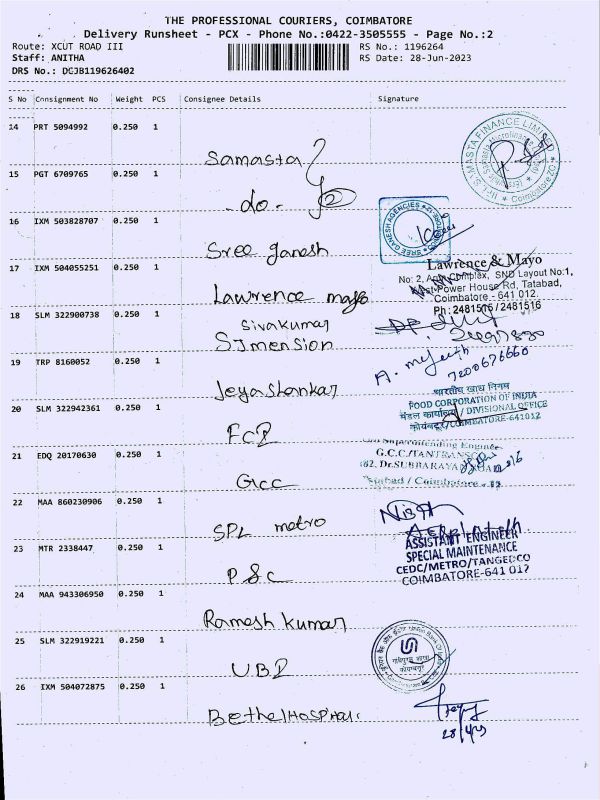 THE PROFESSIONAL COURIERS, COIMBATORE
Delivery Runsheet - PCX - Phone No.:0422-3505555 - Page No.:2
Route: XCUT ROAD III RS No.: 1196264
Staff: ANITHA RS Date: 28-Jun-2023
DRS No.: DGJB119626402
S No Consignment No Weight PCS Consignee Details Signature
14 PRT 5094992 0.250 1
Samasta
15 PGT 6709765 0.250 1
-do-
16 IXM 503828707 0.250 1
SREE GANESH AGENCIES
Sree ganesh
17 IXM 504055251 0.250 1
Lawrence & Mayo
No: 2, Complex, SND Layout No:1,
Power House Rd, Tatabad,
Coimbatore - 641 012.
Ph: 2481515 / 2481516
Lawrence mayo
18 SLM 322900738 0.250 1
Sivakumar
SImension
19 TRP 8160052 0.250 1
7200676660
Jeyashankar
20 SLM 322942361 0.250 1
भारतीय खाद्य निगम
FOOD CORPORATION OF INDIA
मंडल कार्यालय / DIVISIONAL OFFICE
कोयंबटूर / COIMBATORE-641012
FCI
21 EDQ 20170630 0.250 1
Superintending Engineer
G.C.C./TANTRANSCO
182, Dr.SUBBARAYAN ROAD
Tatabad / Coimbatore - 12
Gcc
22 MAA 860230906 0.250 1
SPL metro
23 MTR 2338447 0.250 1
ASSISTANT ENGINEER
SPECIAL MAINTENANCE
CEDC/METRO/TANGEDCO
COIMBATORE-641 012
PSC
24 MAA 943306950 0.250 1
Ramesh kumar
25 SLM 322919221 0.250 1
UBI
26 IXM 504072875 0.250 1
Bethel Hospital